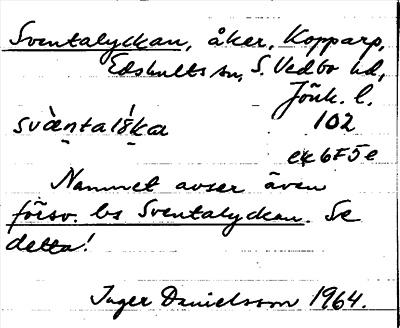 Sventalyckan, åker, Kopparp,
Edshults sn, S. Vedbo hd,
Jönk. l.
svæ̀ntal8̀ka 102
ek 6F5e
Namnet avser även
försv. bs Sventalyckan. Se
detta!
Inger Danielsson 1964.